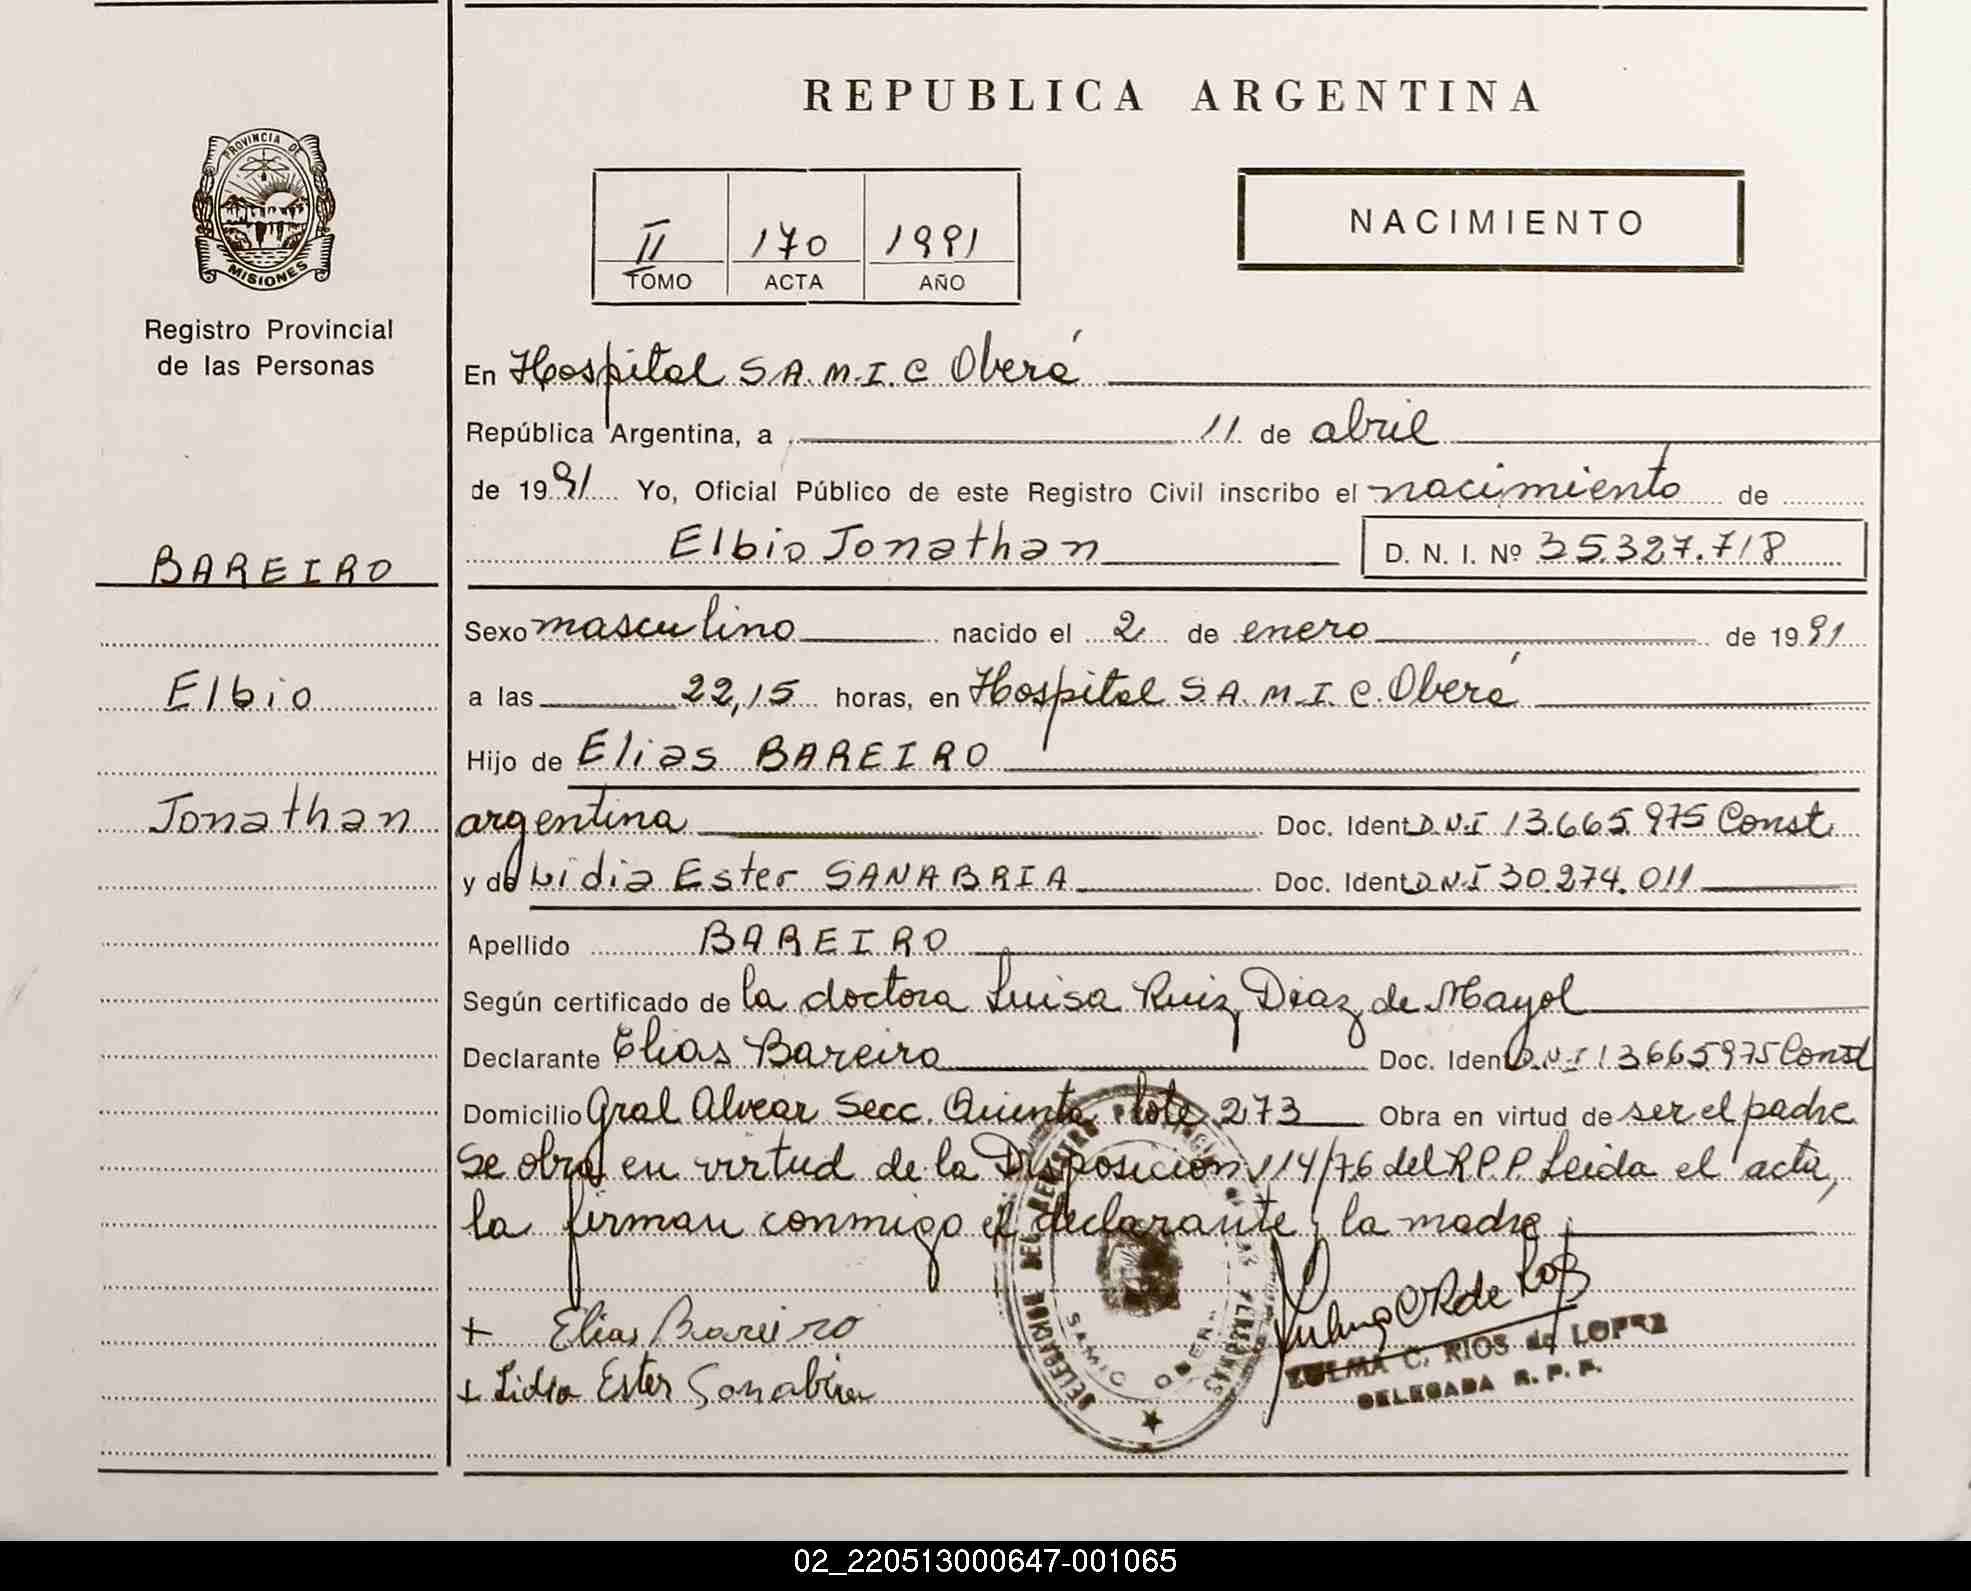 REPUBLICA ARGENTINA
PROVINCIA DE
MISIONES
Registro Provincial
de las Personas
II 170 1991
TOMO ACTA AÑO
NACIMIENTO
En Hospital S.A.M.I.C Oberá
República Argentina, a 11 de abril
de 1991 Yo, Oficial Público de este Registro Civil inscribo el nacimiento de
Elbio Jonathan D. N. I. Nº 35.327.718
BAREIRO
Sexo masculino nacido el 2 de enero de 1991
Elbio
a las 22,15 horas, en Hospital S.A.M.I.C. Oberá
Hijo de Elias BAREIRO
Jonathan
argentina Doc. Ident D.N.I 13.665.975 Const.
y de Lidia Ester SANABRIA Doc. Ident D.N.I 30.274.011
Apellido BAREIRO
Según certificado de la doctora Luisa Ruiz Diaz de Mayol
Declarante Elias Bareiro Doc. Ident D.N.I 13665975 Const
Domicilio Gral Alvear Secc. Quinta lote 273 Obra en virtud de ser el padre
Se obra en virtud de la Disposición 114/76 del R.P.P. Leida el acta,
la firman conmigo el declarante y la madre
+ Elias Bareiro
+ Lidia Ester Sanabria
DELEGACION DEL REGISTRO
PERSONAS
SAMIC OBERA
ZULMA C. RIOS de LOPEZ
DELEGADA R. P. P.
02_220513000647-001065